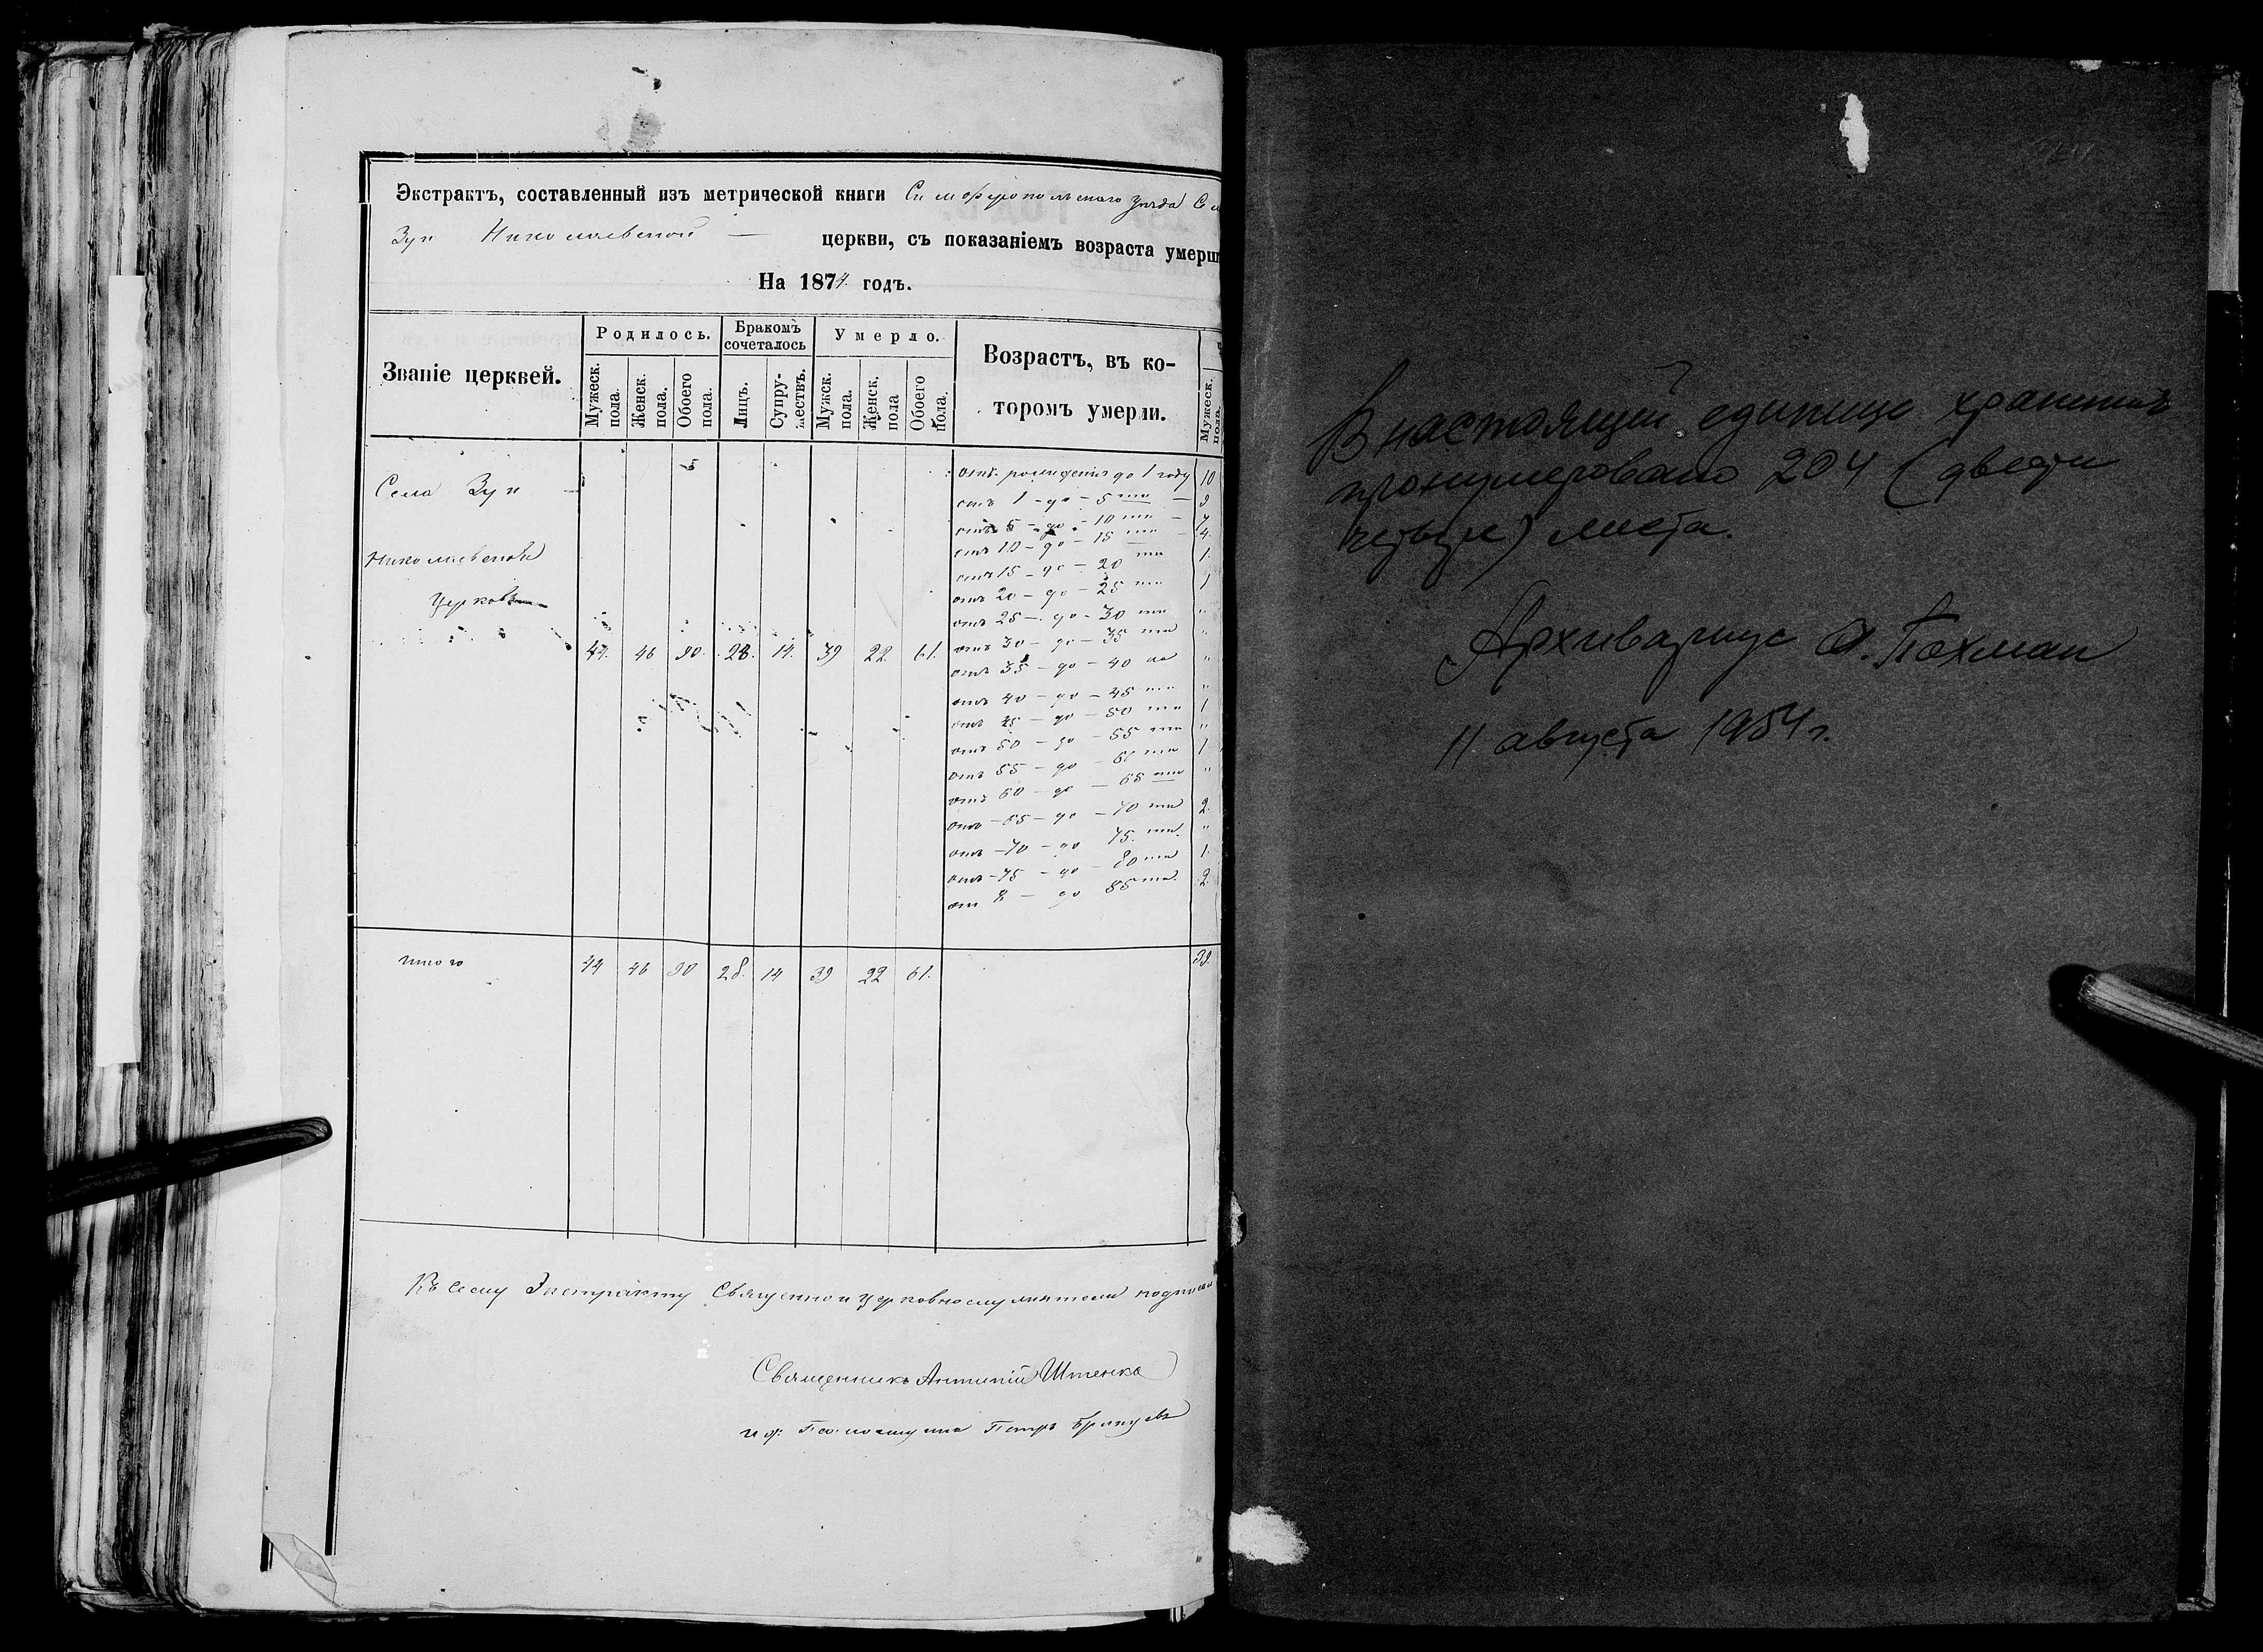 Экстрактъ, составленный изъ метрической книги Симферопольскаго уѣзда Се
Зуи Николаевской — церкви, съ показаніемъ возраста умерш
На 1874 годъ.
Званіе церквей.
Родилось.
Бракомъ сочеталось
Умерло.
Возрастъ, въ которомъ умерли.
Мужеск. пола.
Женск. пола.
Обоего пола.
Лицъ.
Супружествъ.
Мужск. пола.
Женск. пола
Обоего пола.
Мужеск. пола.
Села Зуи
Николаевской
Церковь
44. 46 90. 28. 14. 39 22 61.
отъ рожденія до 1 году 10
отъ 1 – до – 5 ти — 9
отъ 5 – до – 10 ти — 7
отъ 10 – до – 15 ти — 4.
отъ 15 – до – 20 ти 1.
отъ 20 – до – 25 ти 1
отъ 25 – до – 30 ти "
отъ 30 – до – 35 ти "
отъ 35 – до – 40 "
отъ 40 – до – 45 ти "
отъ 45 – до – 50 ти 1
отъ 50 – до – 55 ти "
отъ 55 – до – 60 ти 1
отъ 60 – до – 65 ти "
отъ – 65 – до – 70 ти 2.
отъ – 70 – до 75. ти. "
отъ – 75 – до – 80 ти 1.
от 8 – до 85 ти. 2.
итого 44 46 90 28. 14 39 22 61. 39.
Къ сему Экстракту Священно и церковнослужители подписал
Священникъ Антипій Штенко
и д: Псаломщика Петръ
В настоящей единице хранения
пронумеровано 204 (двести
четыре) листа.
Архивариус Похман
11 августа 1954 г.